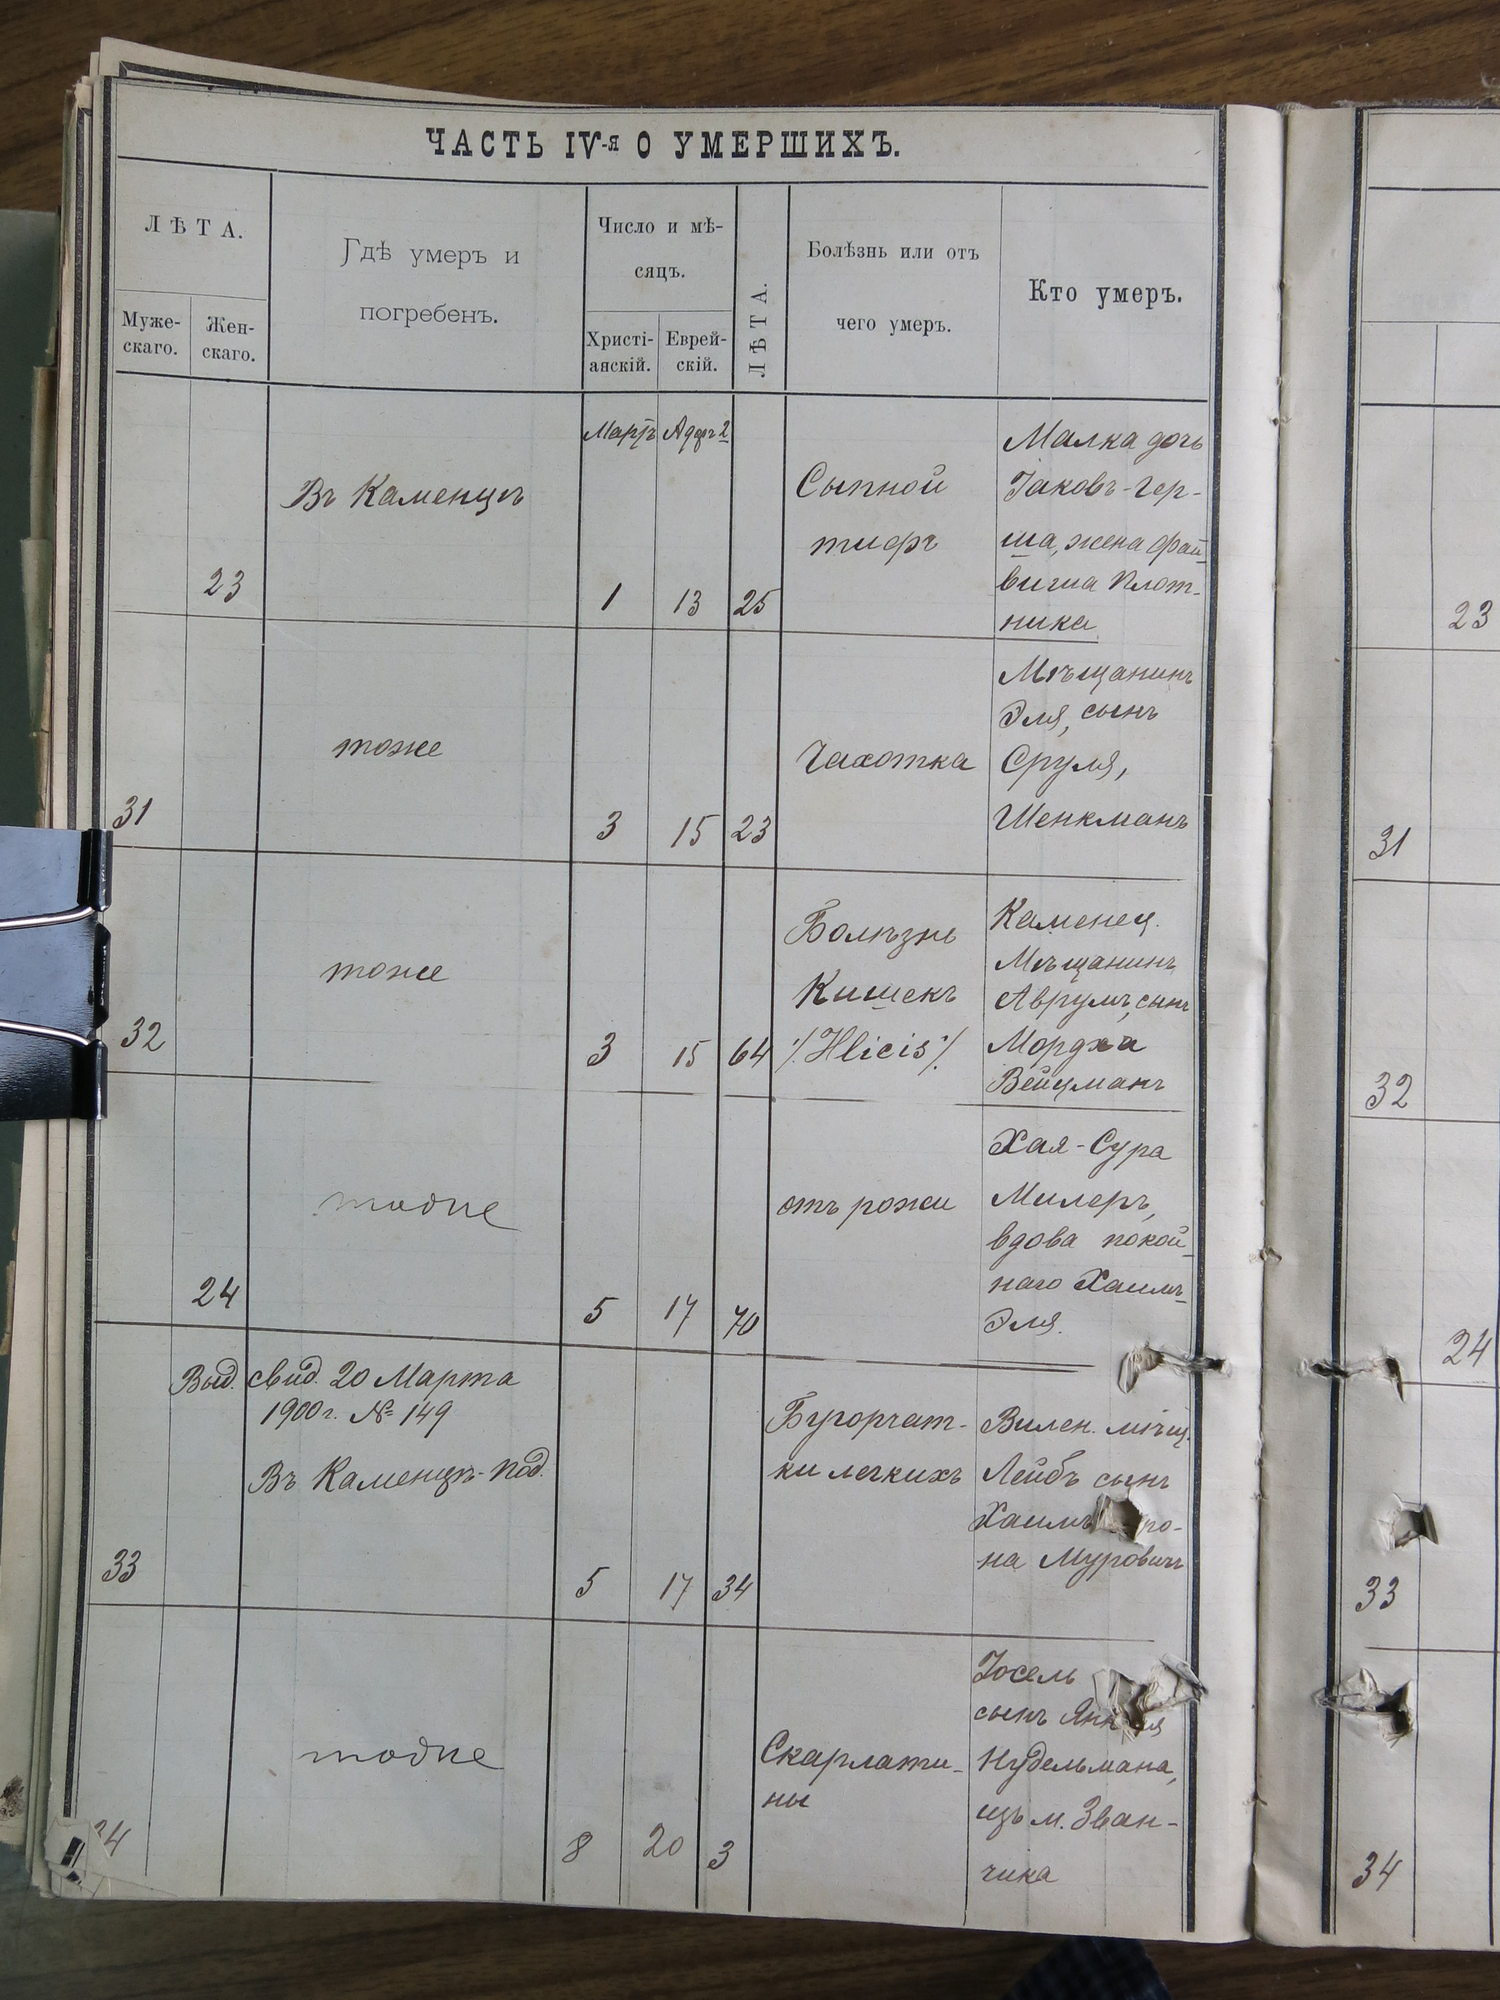 ЧАСТЬ IV-я О УМЕРШИХЪ.
ЛѢТА.
Муже-
скаго.
Жен-
скаго.
Гдѣ умеръ и
погребенъ.
Число и мѣ-
сяцъ.
Христі-
анскій.
Еврей-
скій.
ЛѢТА.
Болѣзнь или отъ
чего умеръ.
Кто умеръ.
Мартъ Адаръ 2
23
Въ Каменцѣ
1 13 25
Сыпной
тифъ
Малка дочь
Іаковъ-Гер-
ша, жена Фай-
виша Плот-
ника
23
31
тоже
3 15 23
Чахотка
Мѣщанинъ
Эля, сынъ
Сруля,
Шенкманъ
31
32
тоже
3 15 64
Болѣзнь
Кишекъ
/Ilicis/
Каменец.
Мѣщанинъ
Аврумъ, сынъ
Мордха
Вейцманъ
32
24
тоже
5 17 70
отъ рожи
Хая-Сура
Милеръ,
вдова покой-
наго Хаимъ-
Эля.
24
Выд. свид. 20 Марта
1900 г. № 149
Въ Каменцѣ-Под.
33
5 17 34
Бугорчат-
ки легкихъ
Вилен. мѣщ.
Лейбъ сынъ
Хаимъ ро-
на Муровичъ
33
34
тоже
8 20 3
Скарлати-
ны
Іосель
сынъ
Нудельмана,
изъ м. Зван-
чика
34